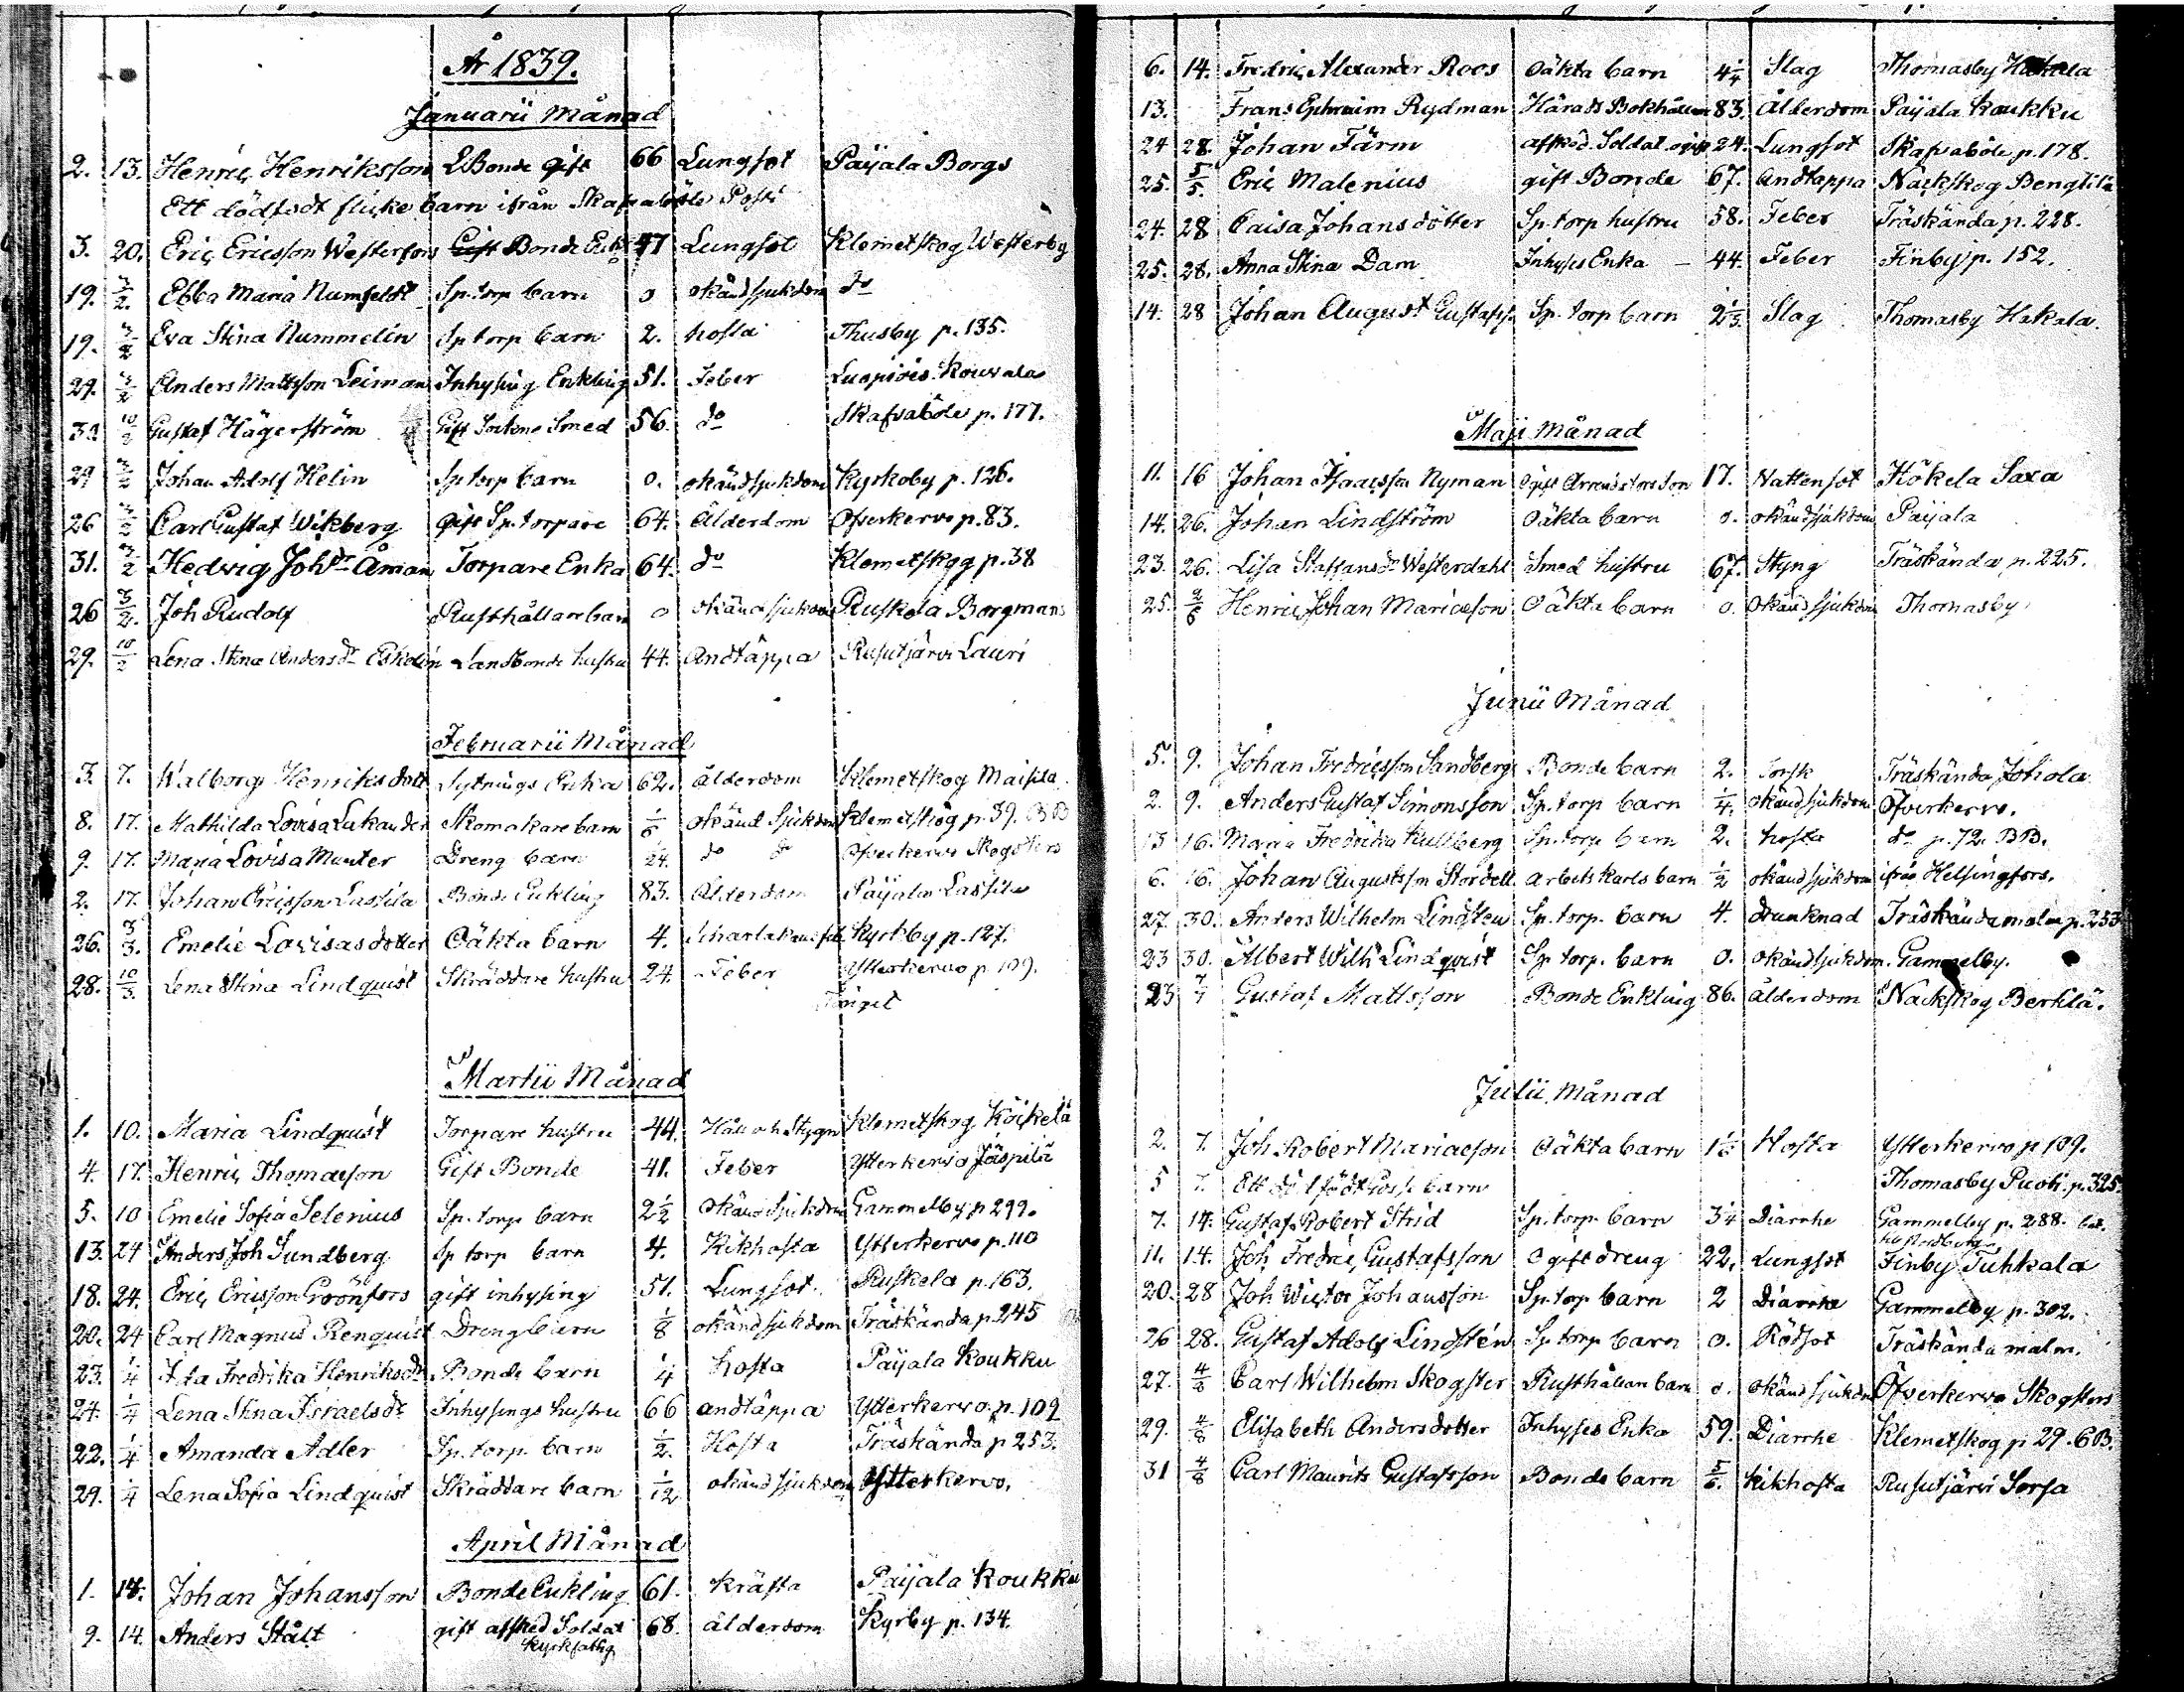 År 1839.
Januarii Månad
2. 13. Henric Henriksson EBonde gift 66 Lungsot Paijala Borgs
Ett dödfödt flicke barn ifrån Skafvaböle Posti
3. 20. Eric Ericsson Westerfors Gift Bonde Enkl 47 Lungsot Klemetskog Westerby
19. 3/2. Ebba Maria Numfeldt Sp. torp barn 0 okänd sjukdom do
19. 3/2 Eva Stina Nummelin Sp torp barn 2. hosta Thusby p. 135.
29. 3/2 Anders Mattsson Leiman Inhysing Enkling 51. Feber Luopiois Kouvala
30 10/2 Gustaf Hägerström Gift Sockne Smed 56. do Skafvaböle p. 177.
29 3/2 Johan Adolf Helin Sp torp barn 0. okänd sjukdom Kyrkoby p. 126.
26 3/2 Carl Gustaf Wikberg gift Sp. torpare 64. Ålderdom Öfverkervo p. 83.
31. 3/2 Hedvig Johdr Åman Torpare Enka 64. do Klemetskog p. 38
26 3/2. Joh Rudolf Rusthållare barn 0 okänd sjukdom Ruskela Borgmans
29. 10/2 Lena Stina Andersdr Eskolin Landbonde hustru 44. Andtäppa Rusutjärvi Lauri
Februarii Månad
3. 7. Walborg Henriksdott Sytnings Enka 62. ålderdom Klemetskog Maisila
8. 17. Mathilda Lovisa Lukander Skomakare barn 1/6 okänd Sjukdom Klemetskog p. 39. BB
9. 17. Maria Lovisa Munter Dreng barn 1/24. do do Öfverkervo Skogsters
2. 17. Johan Ericsson Lassila Bonde Enkling 83. Ålderdom Paijala Lassila
26. 3/3. Emelie Lovisasdotter Oäkta barn 4. Scharlakansfeb Kyrkby p. 127.
28. 10/3. Lena Stina Lindquist Skräddare hustru 24. Feber Ytterkervo p. 109.
Martii Månad
1. 10. Maria Lindquist Torpare hustru 44. Håll och Stygn Klemetskog Köikelä
4. 17. Henric Thomasson Gift Bonde 41. Feber Ytterkervo Jäspilä
5. 10 Emelie Sofia Selenius Sp. torp barn 2 1/2 okänd Sjukdom Gammelby p 299.
13. 24 Anders Joh Sundberg Sp torp barn 4. Kikhosta Ytterkervo p. 110
18. 24. Eric Ericsson Grönfors gift inhysing 51. Lungsot. Ruskela p. 163.
20. 24 Carl Magnus Renquist Dreng barn 1/8 okänd sjukdom Träskända p. 245
23. 1/4 Ida Fredrika Henriksdr Bonde barn 1/4 hosta Paijala Koukku
24. 1/4 Lena Stina Israelsdr Inhysings hustru 66 andtäppa Ytterkervo p. 109
22. 1/4 Amanda Adler Sp. torp. barn 1/2. Hosta Träskända p 253.
29. 1/4 Lena Sofia Lindquist Skräddare barn 1/12 okänd sjukdom Ytterkervo.
April Månad
1. 14. Johan Johansson Bonde Enkling 61. Kräfta Paijala Koukku
9. 14. Anders Stålt gift afsked Soldat 68. ålderdom Kyrby p. 134.
kyrkfattig
6. 14. Fredric Alexander Roos Oäkta barn 4 1/4 Slag Thomasby Hakala
13. Frans Ephraim Rydman Härads Bokhållare 83. Ålderdom Paijala Koukku
24 28. Johan Färm afsked. Soldat ogift 24. Lungsot Skafvaböle p. 178.
25. 5/5. Eric Malenius gift Bonde 67. Andtäppa Nackskog Bengtilä
24. 28 Caisa Johansdotter Sp. torp hustru 58. Feber Träskända p. 228.
25. 28. Anna Stina Dam Inhyses Enka – 44. Feber Finby p. 152.
14. 28 Johan August Gustafss. Sp. torp barn 2 1/3. Slag Thomasby Hakala.
Maji Månad
11. 16 Johan Isacsson Nyman ogift Arrendators Son 17. Vattensot Hökela Saxa
14. 26. Johan Lindström Oäkta barn 0. okänd sjukdom Paijala
23. 26. Lisa Staffansdr Westerdahl Smed hustru 67. Styng Träskända p. 225.
25. 2/6 Henric Johan Mariaeson Oäkta barn 0. Okänd sjukdom Thomasby
Junii Månad
5. 9. Johan Fredricsson Sandberg Bonde barn 2. Torsk Träskända Johola
2. 9. Anders Gustaf Simonsson Sp. torp barn 1/4. okänd sjukdom Öfverkervo.
13 16. Maria Fredrika Kullberg Sp. torp barn 2. hosta do p. 72. BB.
6. 16. Johan Augustsson Stordell arbetskarls barn 1/2 okänd sjukdom ifrån Helsingfors.
27. 30. Anders Wilhelm Lindsten Sp. torp. barn 4. drunknad Träskändamalm p. 253
23 30. Albert Wilh Lindqvist Sp. torp. barn 0. okänd sjukdom. Gammelby.
23 7/7 Gustaf Mattsson Bonde Enkling 86. ålderdom Nackskog Berklä.
Julii Månad
2. 7. Joh Robert Mariaeson Oäkta barn 1 1/6 Hosta Ytterkervo p 109.
5 7. Ett dödfödt Gosse barn Thomasby Puoti p. 325.
7. 14. Gustaf Robert Strid Sp. torp. barn 3 1/4 Diarrhe Gammelby p. 288.
11. 14. Joh Fredric Gustafsson Ogift dreng 22. Lungsot Finby Tuhkala
20. 28 Joh Wictor Johansson Sp. torp barn 2 Diarrhe Gammelby p. 302.
26 28. Gustaf Adolf Lindstén Sp torp barn 0. Rödsot Träskända malm.
27. 4/8 Carl Wilhelm Skogster Rusthållare barn 0. okänd sjukdm Öfverkervo Skogsters
29. 4/8 Elisabeth Andersdotter Inhyses Enka 59. Diarrhe Klemetskog p 29. BB.
31 4/8 Carl Maurits Gustafsson Bonde barn 5/6. Kikhosta Rusutjärvi Sorsa